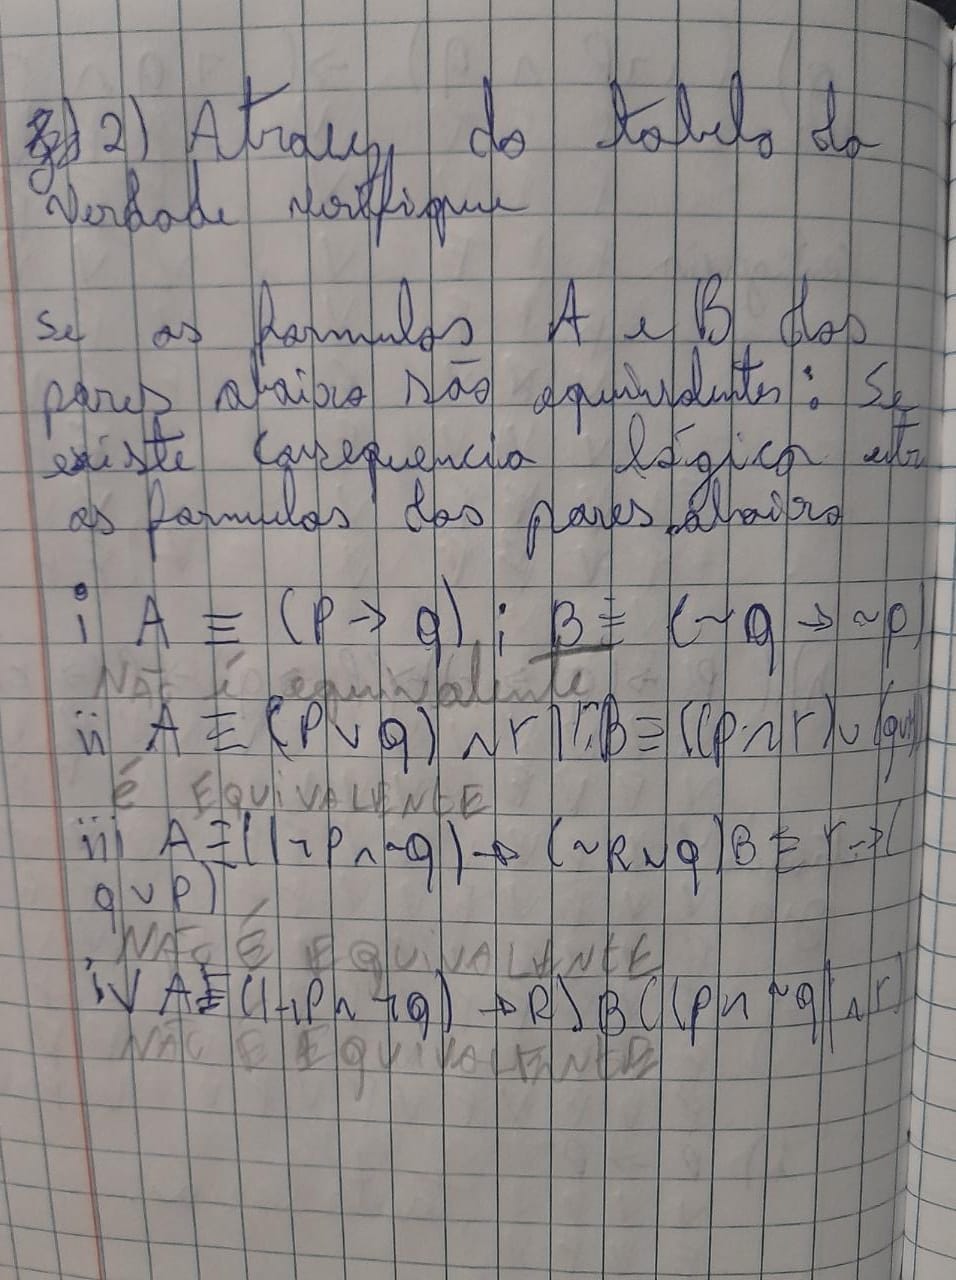 2) Atraves da tabela da
Verdade verifique
se as formulas A e B dos
pares abaixo são equivalentes: Se
existe consequencia lógica etr
as formulas dos pares abaixo
i A ≡ (P → q) ; B ≡ (~q → ~p)
NÃO é equivalente
ii A ≡ (P ∨ q) ∧ r) B ≡ ((p ∧ r) ∨ (q∧r)
é EQUIVALENTE
iii A ≡ ((¬P ∧ ~q) → (~R ∧ q) B ≡ r → (
q ∨ P)
NÃO É EQUIVALENTE
iv A ≡ ((¬P ∧ ¬q) → R) B ((P ∧ ~q) ∧ r)
NÃO E EQUIVALENTE